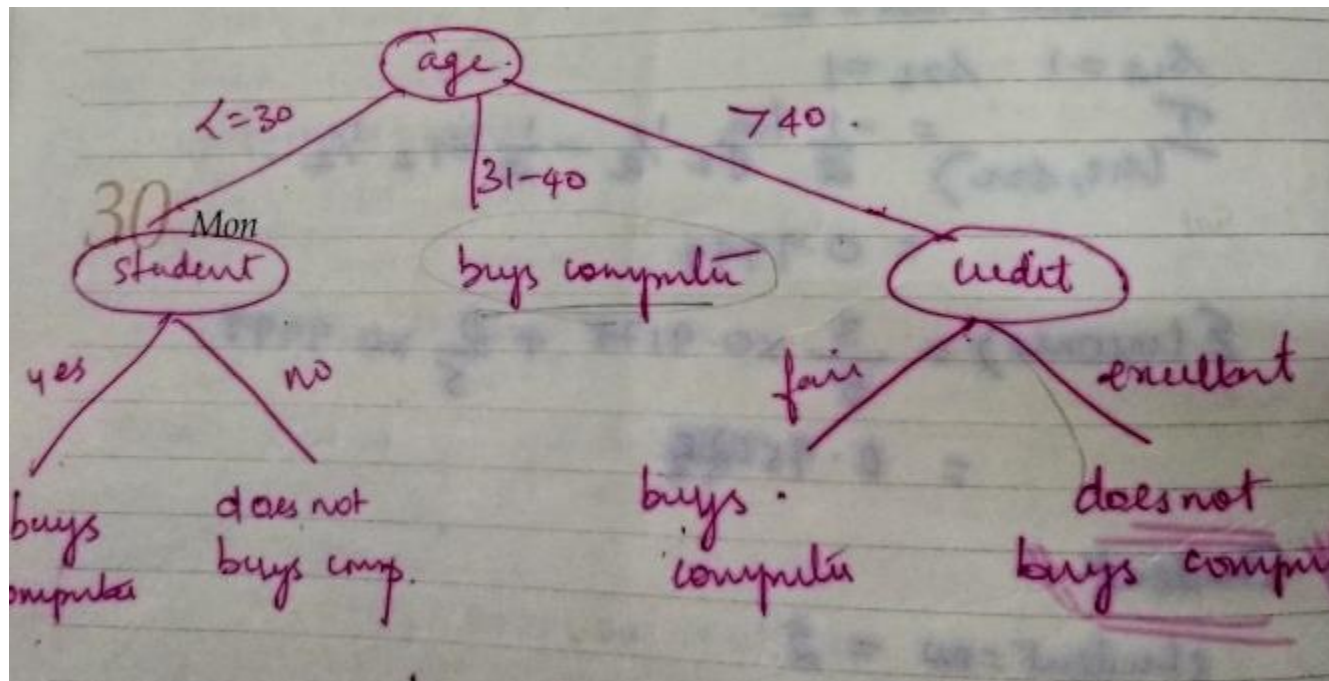 age.
<=30
31-40
>40.
30 Mon
student
buys computer
credit
yes
no
fair
excellent
buys
computer
does not
buys comp.
buys
computer
does not
buys compu